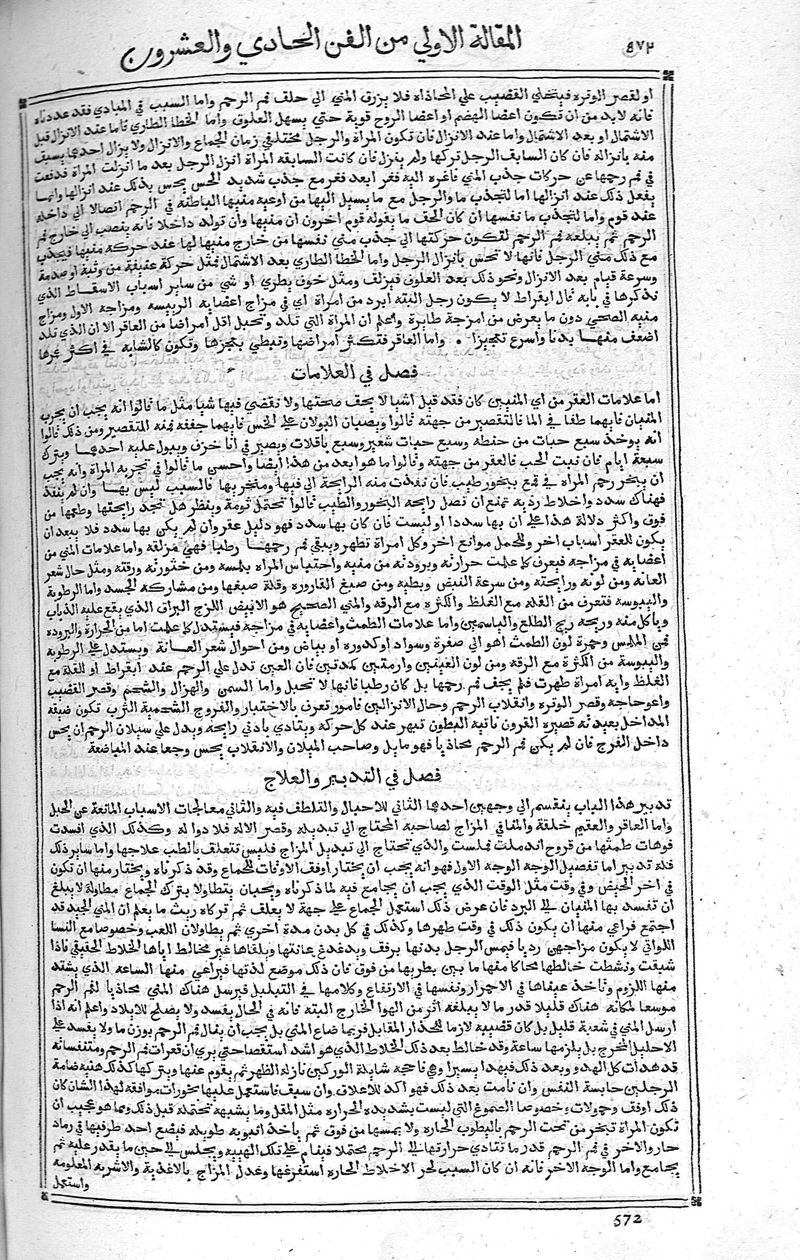 ٥٧٢ المقالة الاولي من الفن الحادي والعشرون
او لقصر الوتره فيتخلي القضيب علي المحاذاة فلا يزرق المني الي حلف فم الرحم واما السبب في المبادي فقد عددناه
فانه لابد من ان تكون اعضا الهضم او اعضا الروح قوية حتي يسهل العلوق واما الخطا الطاري فاما عند الانزال قبل
الاشتمال او بعد الاشتمال واما عند الانزال فان تكون المراة والرجل مختلفي زمان الجماع والانزال ولا يزال احدهما يسبق
منه بانزاله فان كان السابق الرجل تركها ولم ينزل فان كانت السابقه المراة انزل الرجل بعد ما انزلت المراة فدفعت
في فم رحمها عن حركات جذب المني فاغره اليه فغر ابعد فغر مع جذب شديد الحس يحس بذلك عند انزالها وانما
يفعل ذلك عند انزالها اما لتجذب ما والرجل مع ما يسيل اليها من اوعية منيها الباطنه في الرحم انصالا الي داخله
عند قوم واما لتجذب ما نفسها ان كان الحق ما يقوله قوم اخرون ان منيها وان تولد داخلا فانه ينصب الي خارج فم
الرحم ثم يبلعه فم الرحم لتكون حركتها الي جذب مني نفسها من خارج منيها لها عند حركة منيها فيجذب
مع ذلك مني الرجل فانها لا تحس بانزال الرجل واما الخطا الطاري بعد الاشتمال فمثل حركة عنيفة من وثبة او صدمة
وسرعة قيام بعد الانزال ونحو ذلك بعد العلوق فيزلف ومثل خوف يطري او شي من ساير اسباب الاسقاط الذي
نذكرها في بابه قال ابقراط لا يكون رجل البته ابرد من امراة اي في مزاج اعضايه الرييسه ومزاجه الاول ومزاج
منيه الصحي دون ما يعرض من امزجة طايرة واعلم ان المراة التي تلد وتحبل اقل امراضا من العاقر الا ان الذي تلد
اضعف منها بدنا واسرع تعجيزا واما العاقر فتكثر امراضها وتبطي بتعجزها وتكون كالشابه في اكثر عمرها
فصل في العلامات
اما علامات العقر من اي المنيين كان فقد قيل اشيا لا يحف صحتها ولا نقضي فيها شيا مثل ما قالوا انه يجب ان يجرب
المنيان فايهما طفا في الما فالتقصير من جهته قالوا ويصبان البولان علي الخس فايهما جففه فمنه التقصير ومن ذلك قالوا
انه يوخذ سبع حبات من حنطه وسبع حبات شعير وسبع باقلات ويصير في انا خزف ويبول عليه احدهما ويترك
سبعة ايام فان نبت الحب فالعقر من جهته وقالوا ما هو ابعد من هذا ايضا واحسن ما قالوا في تجربه المراة وانه يجب
ان يبخر رحم المراة في قمع ببخور طيب فان نفذت منه الرايحة الي فيها ومنخريها فالسبب ليس بها وان لم ينفذ
فهناك سدد واخلاط رديه تمنع ان تصل رايحه البخور والطيب قالوا تحتمل ثومة وينظر هل تجد رايحتها وطعمها من
فوق واكثر دلالة هذا علي ان بها سددا او ليست فان كان بها سدد فهو دليل عقر وان لم يكن بها سدد فلا يبعد ان
يكون للعقر اسباب اخر وللحمل موانع اخر وكل امراة تطهر ويبقي فم رحمها رطبا فهي مزلقه واما علامات المني من
اعضايه في مزاجه فيعرف كما علمت حرارته وبرودته من منيه واحتباس المراه بلمسه ومن خثورته ورقته ومثل حال شعر
العانه ومن لونه ورايحته ومن سرعة النبض وبطيه ومن صبغ القاروره وقلة صبغها ومن مشاركه الجسد واما الرطوبة
واليبوسه فتعرف من القله مع الغلظ والكثره مع الرقه والمني الصحيح هو الابيض اللزج البراق الذي يقع عليه الذباب
وياكل منه وريحه ريح الطلع والياسمين واما علامات الطمث واعضايه في مزاجه فيستدل كما علمت اما من الحرارة والبروده
فمن الملمس وحمرة لون الطمث اهو الي صفرة وسواد او كدوره او بياض ومن احوال شعر العانة ويستدل علي الرطوبه
واليبوسة من الكثرة مع الرقه ومن لون العينين وارمتين كمدتين فان العين تدل علي الرحم عند ابقراط او القلة مع
الغلظ وايه امراة طهرت فلم يجف فم رحمها بل كان رطبا فانها لا تحبل واما السمن والهزال والشحم وقصر القضيب
واعوجاجه وقصر الوتره وانقلاب الرحم وحال الانزالين فامور تعرف بالاختبار والفروج الشحمية الثرب تكون ضيقه
المداخل بعيدته قصيرة القرون ناتيه البطون تبهر عند كل حركة ويتادي بادني رايحه ويدل علي سيلان الرحم ان يحس
داخل الفرج فان لم يكن فم الرحم محاذيا فهو مايل وصاحب الميلان والانقلاب يحس وجعا عند المباضعة
فصل في التدبير والعلاج
تدبير هذا الباب ينقسم الي وجهين احدهما الثاني للاحبال والتلطف فيه والثاني معالجات الاسباب المانعة عن الحبل
واما العاقر والعقيم خلقة والمنافي المزاج لصاحبه المحتاج الي تبديله وقصر الاله فلا دوا له وكذلك الذي انسدت
فوهات طمثها من قروح اندملت فملست والذي تحتاج الي تبديل المزاج فليس تتعلف بالطب علاجها واما ساير ذلك
فله تدبير اما تفصيل الوجه الوجه الاول فهو انه يجب ان يختار اوفف الاوقات للجماع وقد ذكرناه ويختار منها ان تكون
في اخر الحيض وفي وقت مثل الوقت الذي يجب ان يجامع فيه لما ذكرناه ويحبان يتطاولا بترك الجماع مطاولة لا يبلغ
ان تفسد بها المنيان الي البرد فان عرض ذلك استعمل الجماع علي جهة لا يعلف ثم تركاه ريث ما يعلم ان المني الجيد قد
اجتمع فراعي منها ان يكون ذلك في وقت طهرها وكذلك في كل بدن مدة اخري ثم يطاولان اللعب وخصوصا مع النسا
اللواتي لا يكون مزاجهن رديا فيمس الرجل بدنها برفف ويدغدغ عانتها ويلقاها غير مخالط اياها الخلاط الحقيقي فاذا
شبقت ونشطت خالطها محاكا منها ما بين بظريها من فوق فان ذلك موضع لذتها فيراعي منها الساعة الذي يشتد
منها اللزوم وتاخذ عيناها في الاحمرار ونفسها في الارتفاع وكلامها في التبلبل فيرسل هناك المني محاذيا لفم الرحم
موسعا لمكانه هناك قليلا قدر ما لا يبلغه اثر من الهوا الخارج البته فانه في الحال يفسد ولا يصلح للايلاد واعلم انه اذا
ارسل المني في شعبة قليل بل كان قضيبه لازما للجدار المقابل فربما ضاع المني بل يجب ان ينال فم الرحم بوزن ما ولا يفسد علي
الاحليل المخرج بل يلزمها ساعة وقد خالط بعد ذلك الخلاط الذي هو اشد استقصا حتي يري ان فغرات فم الرحم ومتنفساته
قد هدات كل الهدو وبعد ذلك فيهدا يسيرا وهي فاحجه شايلة الوركين نازله الظهر ثم يقوم عنها ويتركها كذلك هنيه ضامة
الرجلين حابسة النفس وان نامت بعد ذلك فهو اكد للاعلاق وان سيف فاستعمل عليها بخورات موافقه لهذا الشان كان
ذلك اوفف وحمولات وخصوصا الصموغ التي ليست بشديده الحراره مثل المقل وما يشبهه تحتمله قبل ذلك ومما هو عجيب ان
تكون المراة تبخر من تحت الرحم بالبطوب الحاره ولا يشمها من فوق ثم ياخذ انبوبه طويله فيضع احد طرفيها في رماد
حار والاخر في فم الرحم قدر ما تتادي حرارتها الي الرحم محتملا فينام علي تلك الهييه ويجلس الي حين ما يقدر عليه ثم
يجامع واما الوجه الاخر فانه ان كان السبب لحر الاخلاط الحاره استفرغها وعدل المزاج بالاغذية والاشربه المعلومه
واستعمل
572